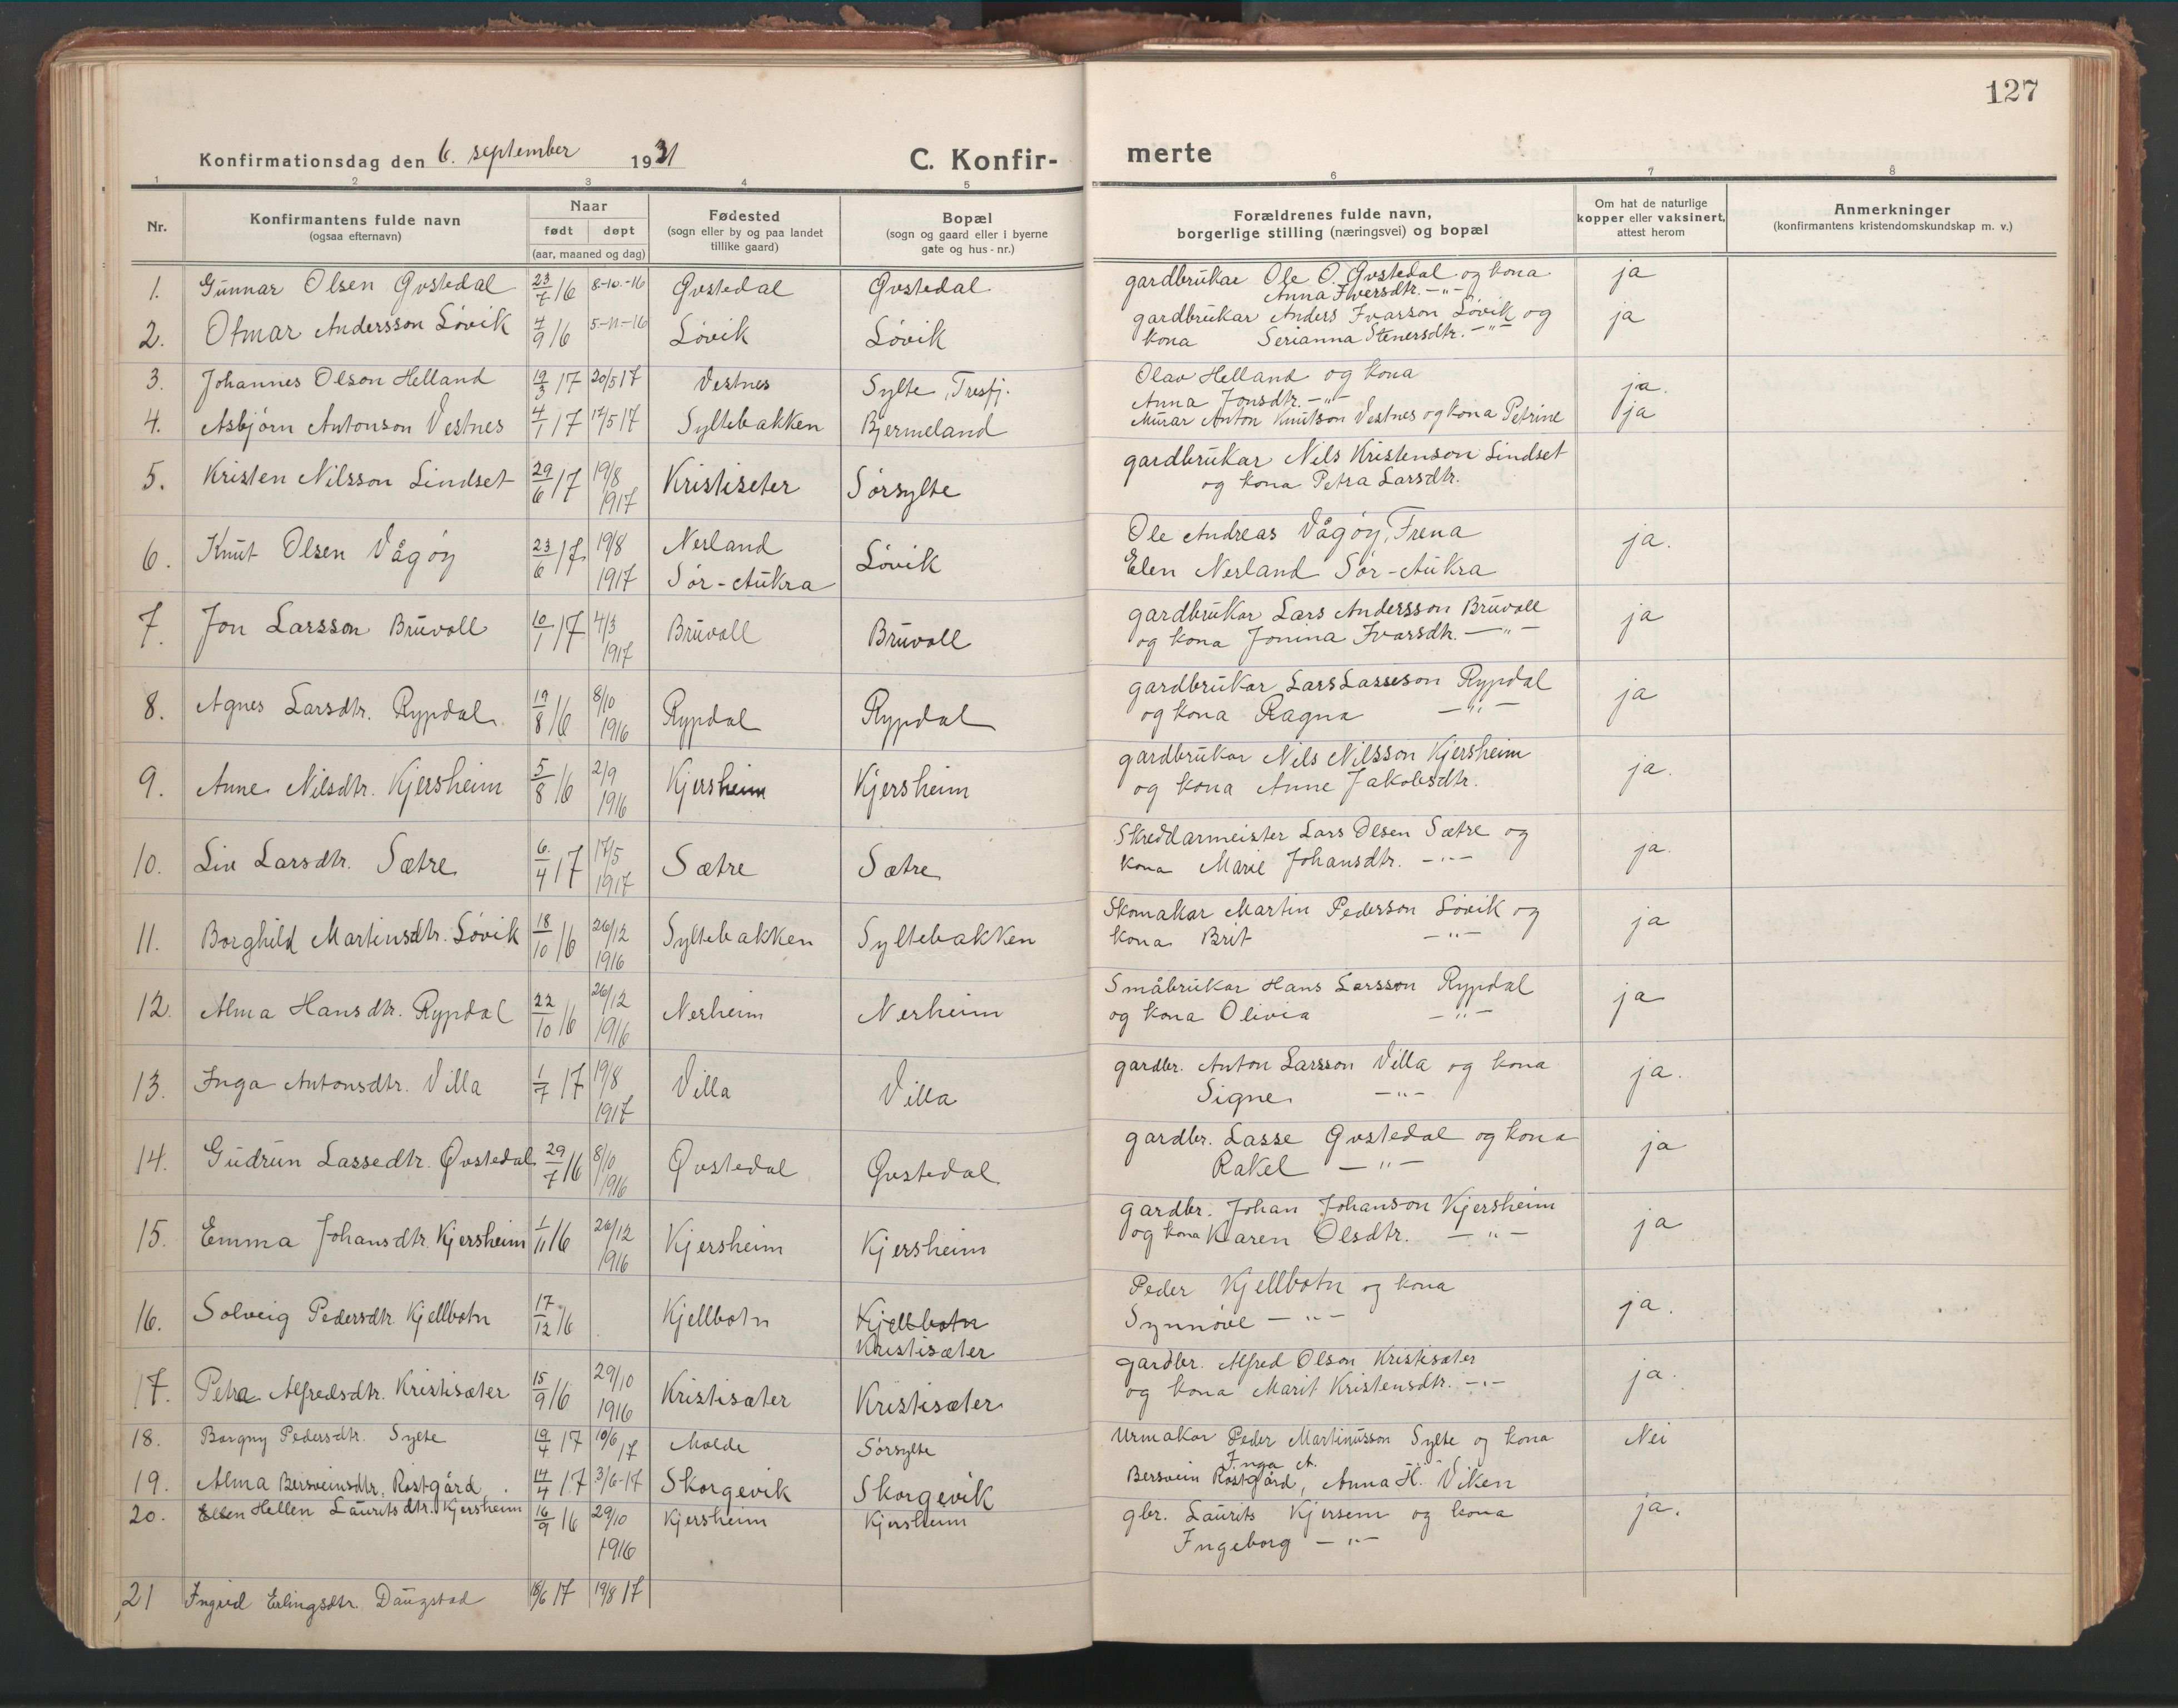 127
Konfirmationsdag den 6. september 1931
C. Konfir-
merte
1 2 3 4 5 6 7 8
Nr.
Konfirmantens fulde navn
(ogsaa efternavn)
Naar
født døpt
(aar, maaned og dag)
Fødested
(sogn eller by og paa landet
tillike gaard)
Bopæl
(sogn og gaard eller i byerne
gate og hus-nr.)
Forældrenes fulde navn,
borgerlige stilling (næringsvei) og bopæl
Om hat de naturlige
kopper eller vaksinert,
attest herom
Anmerkninger
(konfirmantens kristendomskundskap m. v.)
1. Gunnar Olsen Øvstedal 23/7 16 8-10-16 Øvstedal Øvstedal gardbrukar Ole O. Øvstedal og kona ja
Anna Iversdtr. -"-
2. Otmar Andersson Løvik 4/9 16 5-11-16 Løvik Løvik gardbrukar Anders Ivarson Løvik og ja
kona Serianna Stenersdtr. -"-
3. Johannes Olson Helland 19/3 17 20/5 17 Vestnes Sylte, Tresfj. Olav Helland og kona ja.
Anna Jonsdtr. -"-
4. Asbjørn Antonson Vestnes 4/1 17 17/5 17 Syltebakken Bjermeland Murar Anton Knutson Vestnes og kona Petrine ja
5. Kristen Nilsson Lindset 29/6 17 19/8 1917 Kristiseter Sørsylte gardbrukar Nils Kristenson Lindset
og kona Petra Larsdtr.
6. Knut Olsen Vågøy 23/6 17 19/8 1917 Nerland Løvik Ole Andreas Vågøy, Frena ja.
Sør-Aukra Elen Nerland Sør-Aukra
7. Jon Larsson Bruvoll 10/1 17 4/3 1917 Bruvoll Bruvoll gardbrukar Lars Andersson Bruvoll ja
og kona Jonina Ivarsdtr. -"-
8. Agnes Larsdtr. Rypdal 19/8 16 8/10 1916 Rypdal Rypdal gardbrukar Lars Lasseson Rypdal ja
og kona Ragna -"-
9. Anne Nilsdtr. Kjersheim 5/8 16 2/9 1916 Kjersheim Kjersheim gardbrukar Nils Nilsson Kjersheim ja.
og kona Anne Jakobsdtr.
10. Liv Larsdtr. Sætre 6/4 17 17/5 1917 Sætre Sætre Skreddarmeister Lars Olsen Sætre og ja.
kona Marie Johansdtr. -"-
11. Borghild Martinsdtr. Løvik 18/10 16 26/12 1916 Syltebakken Syltebakken Skomakar Martin Pederson Løvik og ja
kona Brit -"-
12. Alma Hansdtr. Rypdal 22/10 16 26/12 1916 Nerheim Nerheim Småbrukar Hans Larsson Rypdal ja
og kona Olivia -"-
13. Inga Antonsdtr. Villa 1/7 17 19/8 1917 Villa Villa gardbr. Anton Larsson Villa og kona ja.
Signe -"-
14. Gudrun Lassedtr. Øvstedal 29/7 16 8/10 1916 Øvstedal Øvstedal gardbr. Lasse Øvstedal og kona ja
Rakel -"-
15. Emma Johansdtr. Kjersheim 1/11 16 26/12 1916 Kjersheim Kjersheim gardbr. Johan Johanson Kjersheim ja
og kona Karen Olsdtr. -"-
16. Solveig Pedersdtr. Kjellbotn 17/12 16 Kjellbotn Kjellbotn Peder Kjellbotn og kona ja.
Kristisæter Synnøve -"-
17. Petra Alfredsdtr. Kristisæter 15/9 16 29/10 1916 Kristisæter Kristisæter gardbr. Alfred Olson Kristisæter ja.
og kona Marit Kristensdtr. -"-
18. Borgny Pedersdtr. Sylte 19/4 17 10/6 17 Molde Sørsylte Urmakar Peder Martinusson Sylte og kona Nei
Inga A. -"-
19. Alma Bersveinsdtr. Rostgård 14/4 17 3/6-17 Skorgevik Skorgevik Bersvein Rostgård, Anna H. Viken
20. Ellen Hellen Lauritsdtr. Kjersheim 16/9 16 29/10 1916 Kjersheim Kjersheim gbr. Laurits Kjersem og kona ja.
Ingeborg -"-
21 Ingrid Erlingsdtr. Daugstad 18/6 17 19/8 17